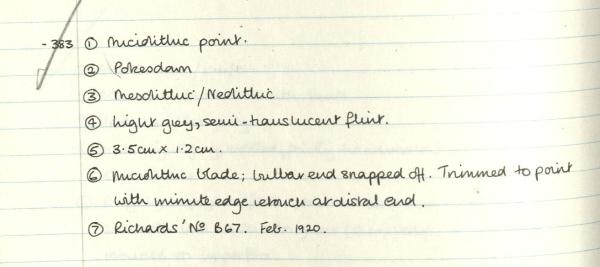 - 383 ① Microlithic point.
② Pokesdown
③ Mesolithic / Neolithic
④ Light grey, semi-translucent flint.
⑤ 3.5cm x 1.2cm.
⑥ Microlithic blade; bulbar end snapped off. Trimmed to point
with minute edge retouch at distal end.
⑦ Richards' No B67. Feb. 1920.